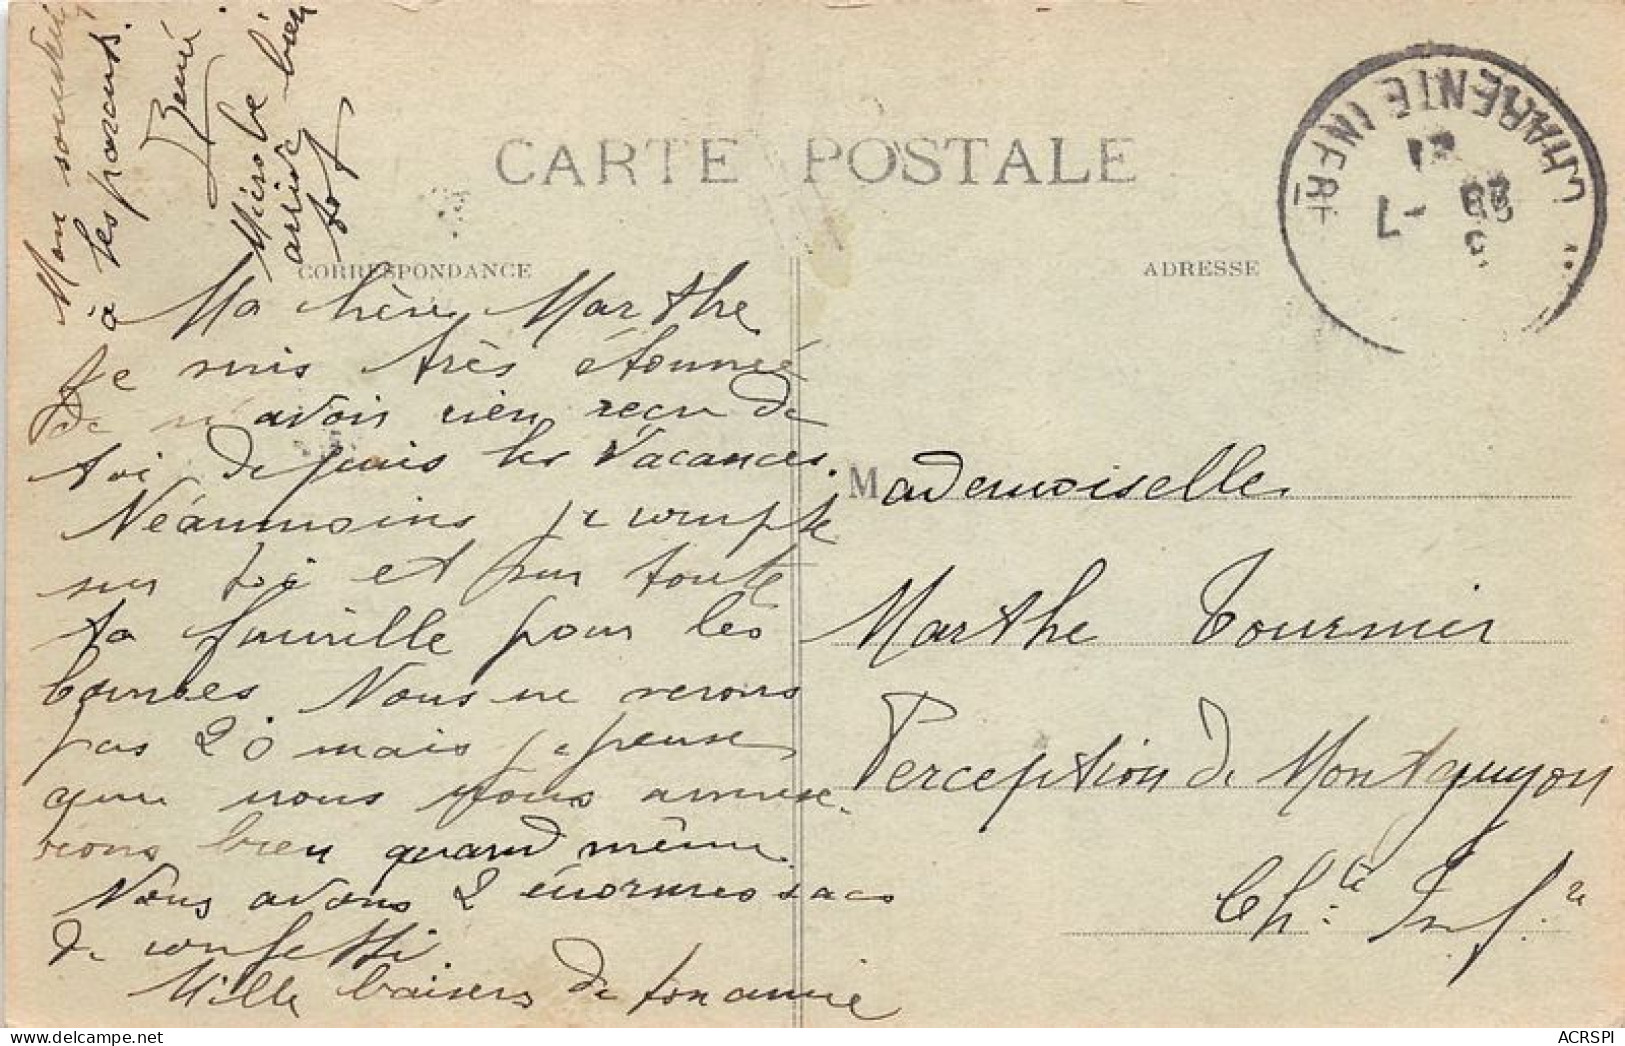 Mon souvenir
à tes parents.
Renée
Microbe bien
arrivé
CARTE POSTALE
CORRESPONDANCE
ADRESSE
CHARENTE INFRE
Ma chère Marthe
Je suis très étonnée
de n'avoir rien reçu de
toi depuis les vacances.
Néanmoins je compte
sur toi et sur toute
ta famille pour les
Nous ne serons
pas 20 mais je pense
que nous nous amuse-
rons bien quand même.
Nous avons 2 énormes sacs
de confetti.
Mille baisers de ton amie
Mademoiselle
Marthe Tournier
Perception de Montguyon
Chte Infre
ACRSPI